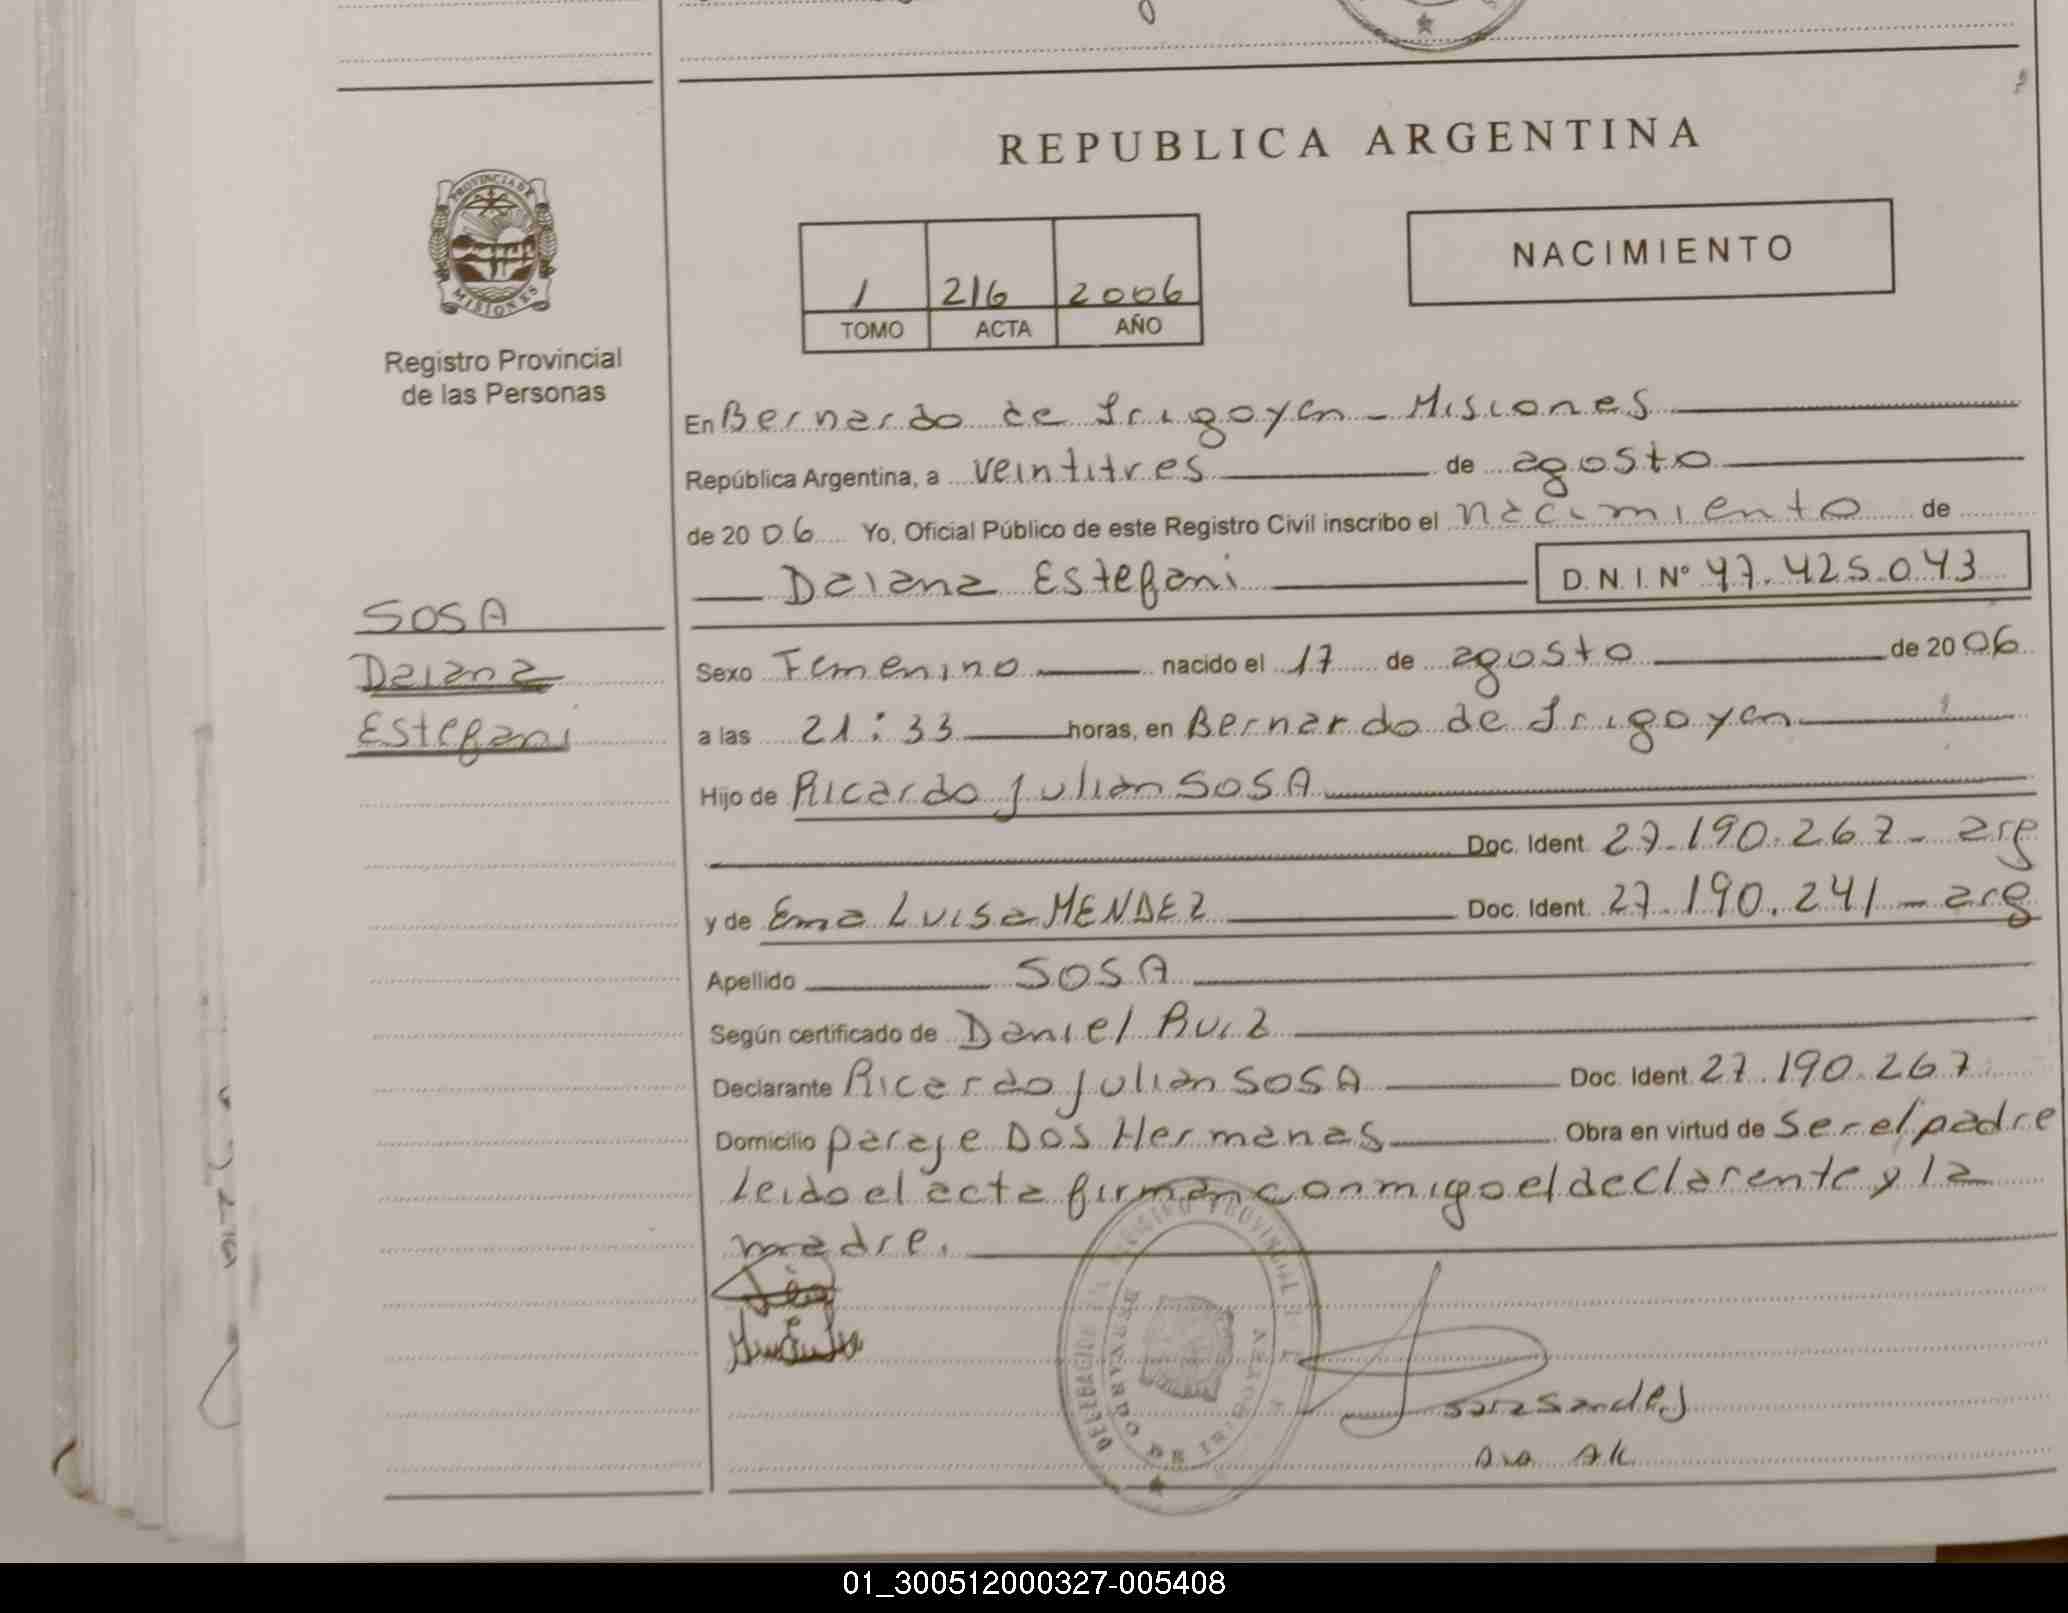 REPUBLICA ARGENTINA
PROVINCIA DE
MISIONES
Registro Provincial
de las Personas
NACIMIENTO
1 216 2006
TOMO ACTA AÑO
En Bernardo de Irigoyen - Misiones
República Argentina, a veintitres de agosto
de 2006 Yo, Oficial Público de este Registro Civil inscribo el nacimiento de
Daiana Estefani D.N.I. Nº 47.425.043
SOSA
Daiana
Estefani
Sexo Femenino nacido el 17 de agosto de 2006
a las 21:33 horas, en Bernardo de Irigoyen
Hijo de Ricardo Julian SOSA
Doc. Ident. 27.190.267 - arg
y de Ema Luisa MENDEZ Doc. Ident. 27.190.241 - arg
Apellido SOSA
Según certificado de Daniel Ruiz
Declarante Ricardo Julian SOSA Doc. Ident. 27.190.267
Domicilio paraje Dos Hermanas Obra en virtud de ser el padre
Leido el acta firman conmigo el declarante y la
madre.
DELEGACION REGISTRO PROVINCIAL DE
BERNARDO DE IRIGOYEN
01_300512000327-005408